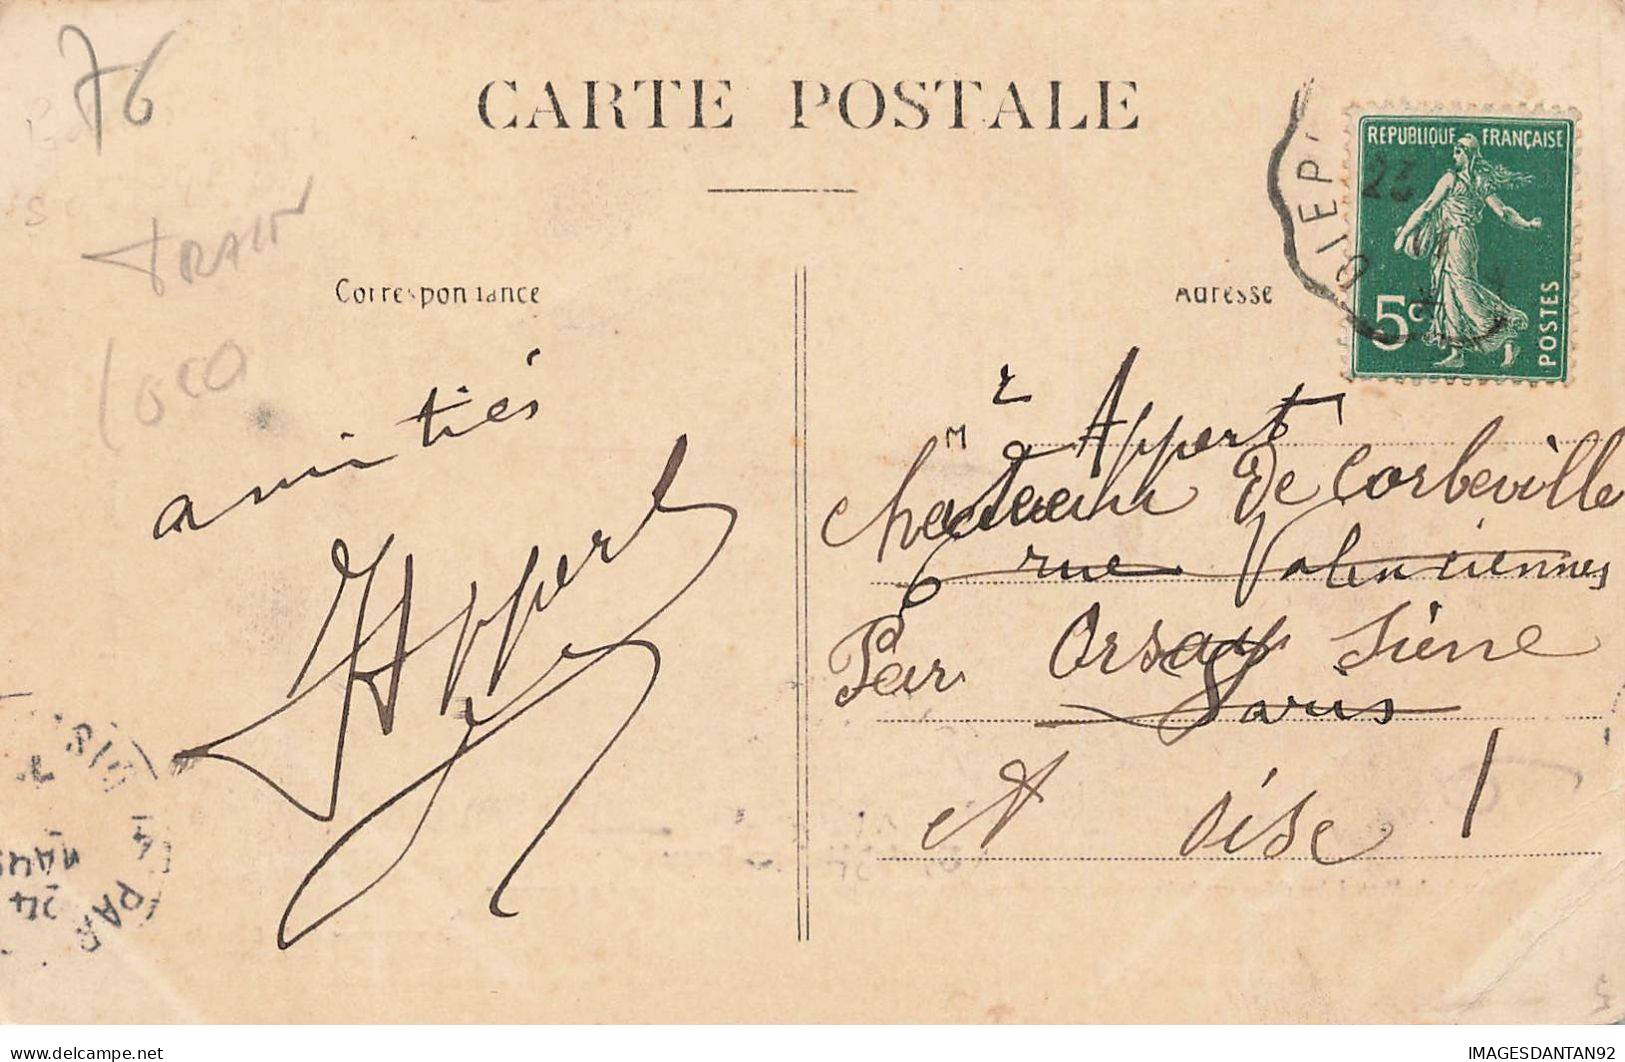 76
CARTE POSTALE
TRAIN
LOCO
Correspondance
Adresse
REPUBLIQUE FRANÇAISE
5c
POSTES
DIEPP
23
amitiés
HAppert
Mr Appert
Chateau de Corbeville
6 rue Valenciennes
Par Orsay Seine
Paris
et Oise
PARIS
24
IMAGESDANTAN92